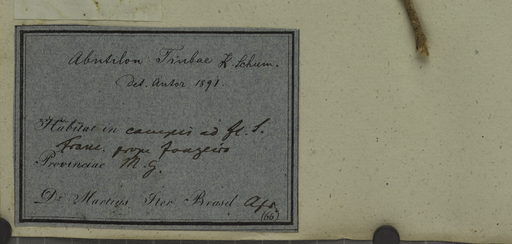 Abutilon Trubae K. Schum.
Det. Autor 1891.
Habitat in campis ad fl. S.
Franc. prope Joazeiro
Provinciae M. G.
Dr Martius Iter Brasil
(66)